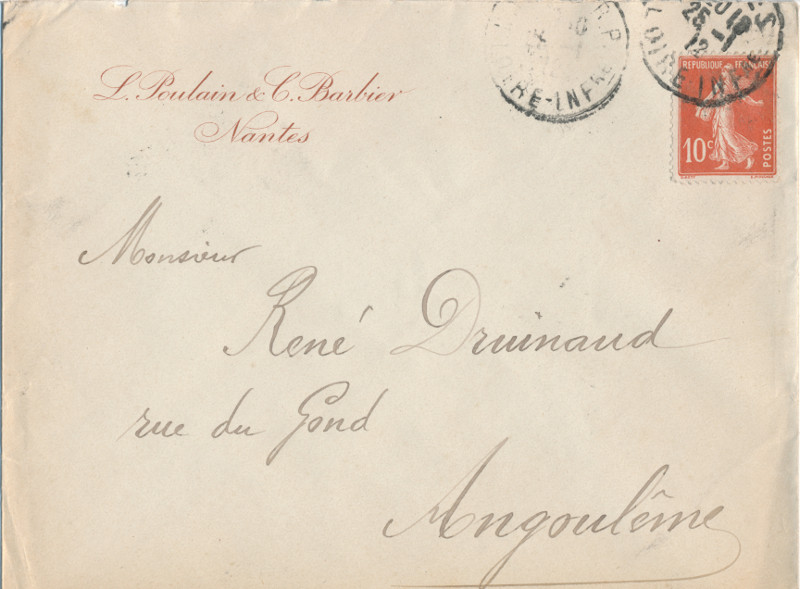 L. Poulain & C. Barbier
Nantes
R.P.
LOIRE-INFRE
25-1
12
LOIRE-INFRE
REPUBLIQUE FRANÇAISE
10c
POSTES
Monsieur
René Druinaud
rue du Gond
Angoulême